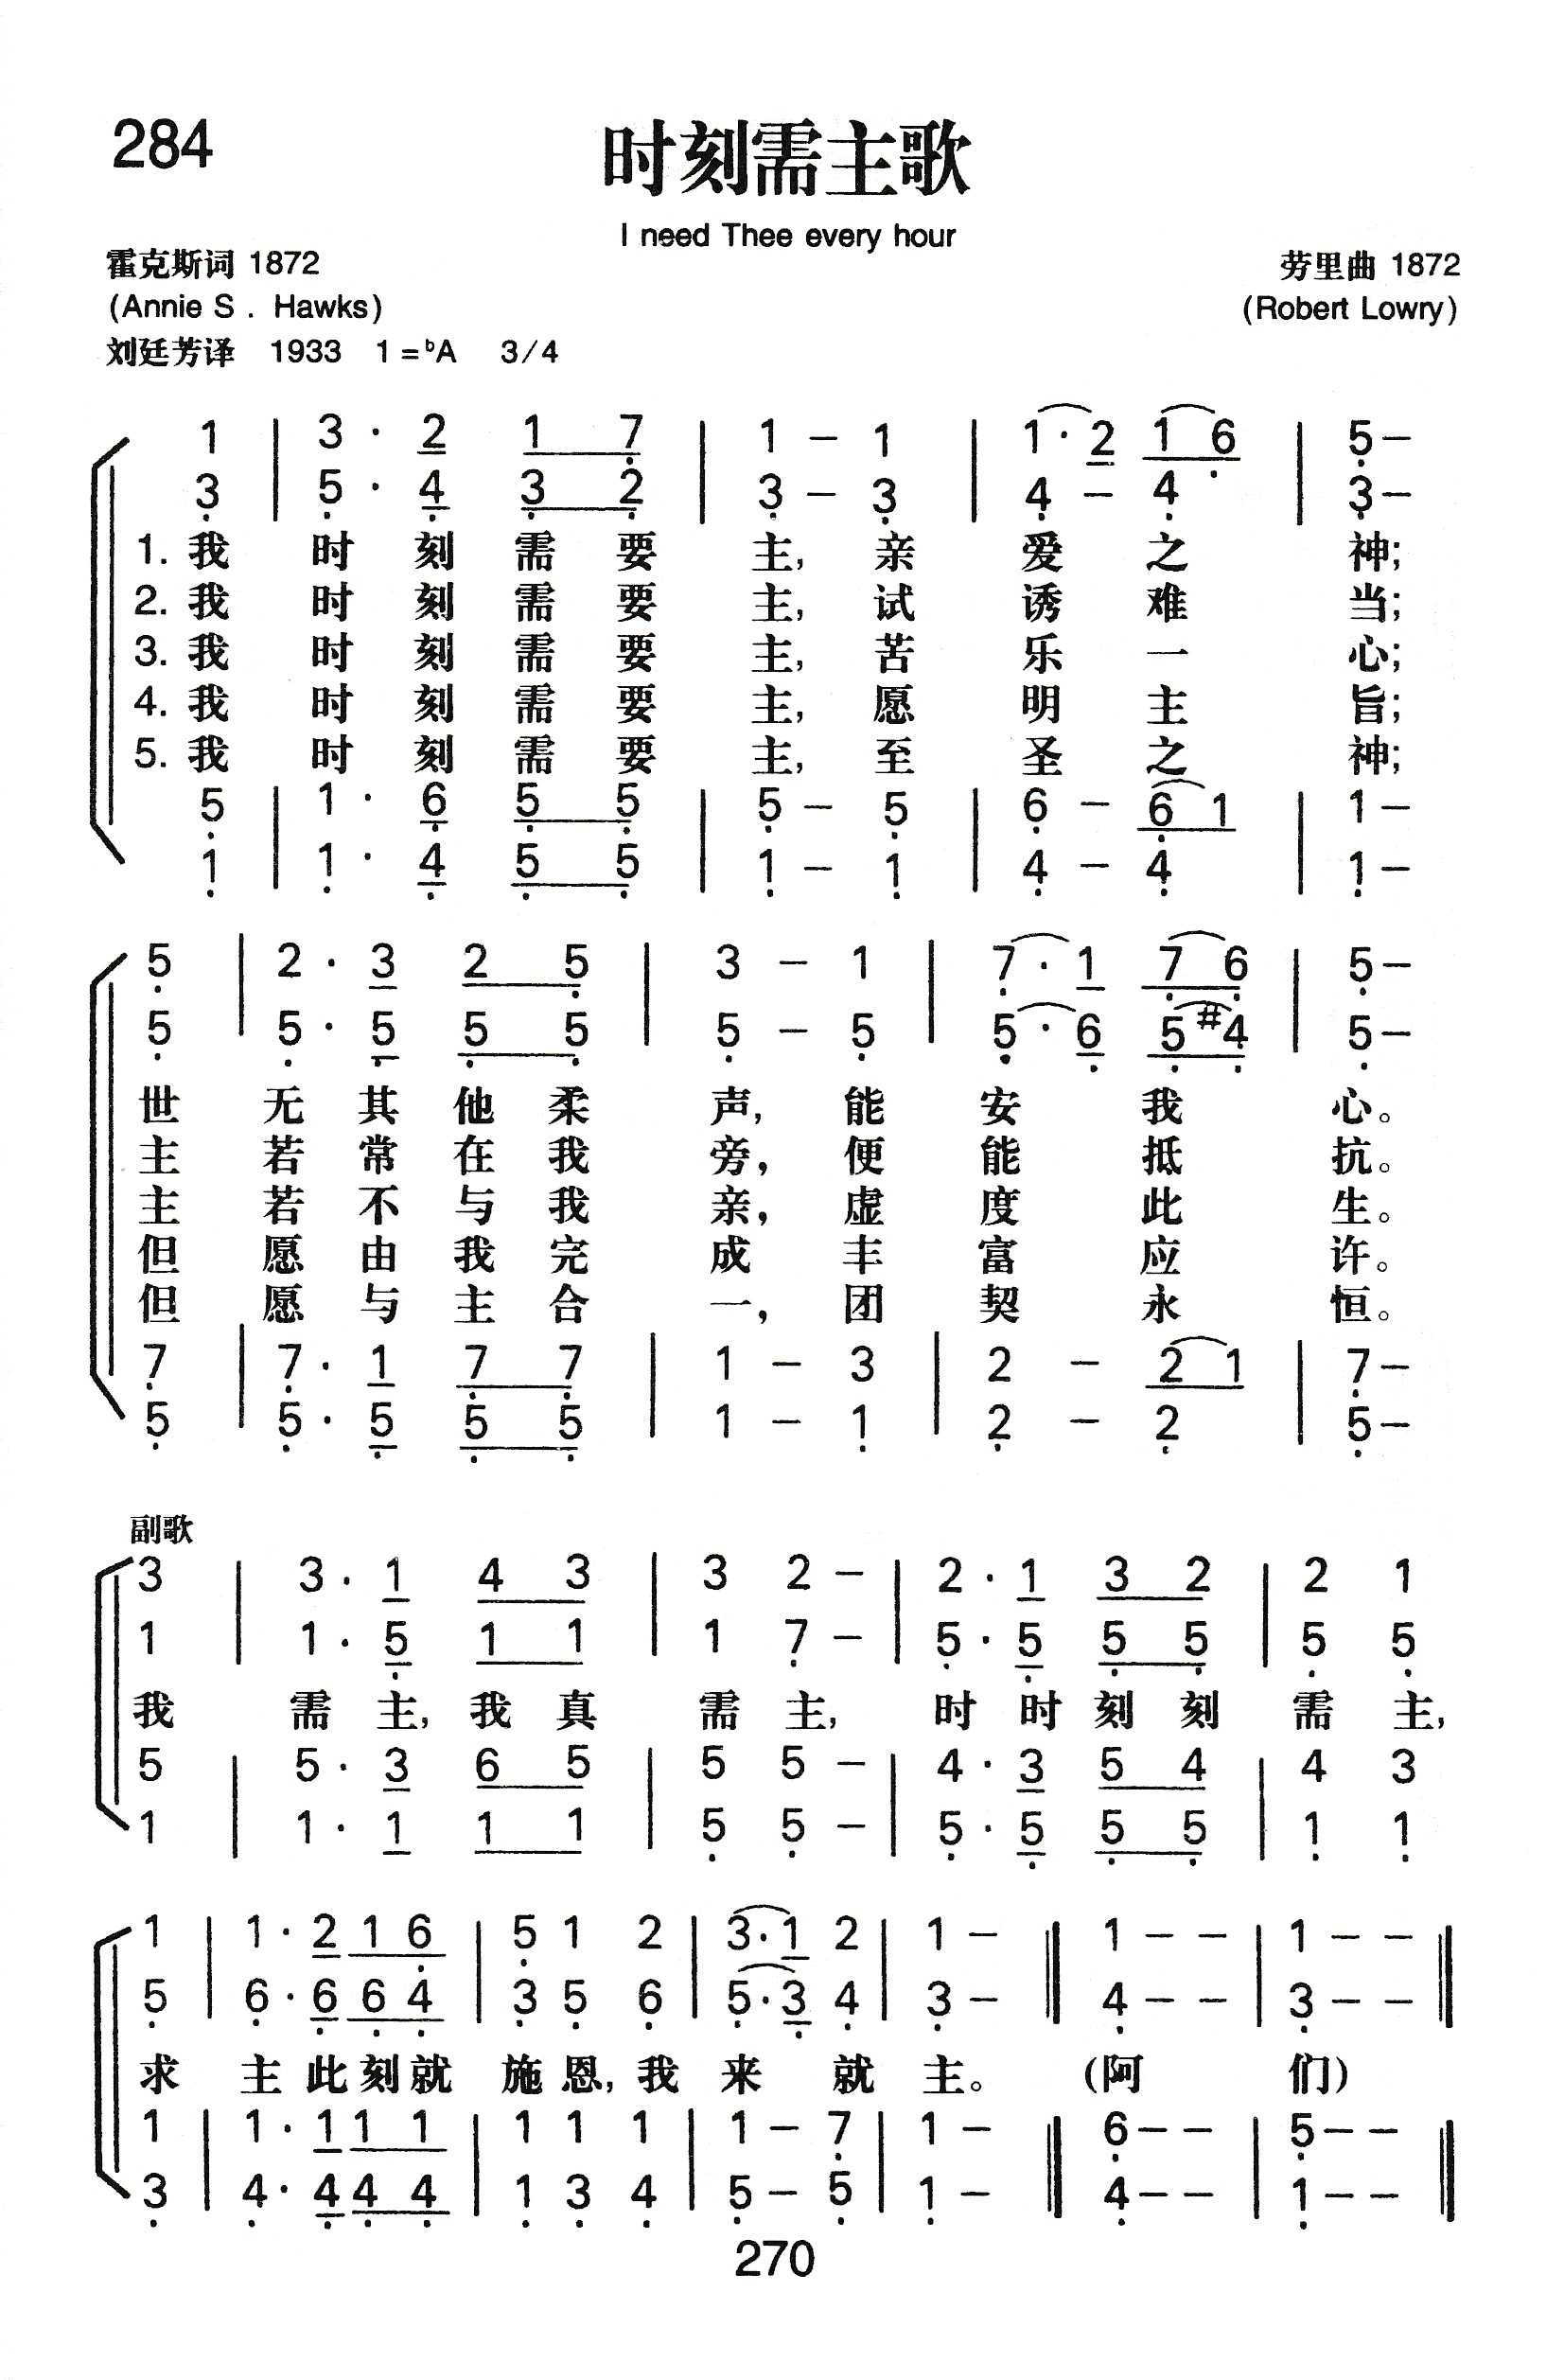 284
时刻需主歌
I need Thee every hour
霍克斯词 1872
劳里曲 1872
(Annie S . Hawks)
(Robert Lowry)
刘廷芳译 1933 1=ᵇA 3/4
1 | 3 · 2 1 7 | 1 – 1 | 1 · 2 1 6 | 5 –
3 | 5 · 4 3 2 | 3 – 3 | 4 – 4 · | 3 –
1. 我 时 刻 需 要 主, 亲 爱 之 神;
2. 我 时 刻 需 要 主, 试 诱 难 当;
3. 我 时 刻 需 要 主, 苦 乐 一 心;
4. 我 时 刻 需 要 主, 愿 明 主 旨;
5. 我 时 刻 需 要 主, 至 圣 之 神;
5 | 1 · 6 5 5 | 5 – 5 | 6 – 6 1 | 1 –
1 | 1 · 4 5 5 | 1 – 1 | 4 – 4 | 1 –
5 | 2 · 3 2 5 | 3 – 1 | 7 · 1 7 6 | 5 –
5 | 5 · 5 5 5 | 5 – 5 | 5 · 6 5 #4 | 5 –
世 无 其 他 柔 声, 能 安 我 心。
主 若 常 在 我 旁, 便 能 抵 抗。
主 若 不 与 我 亲, 虚 度 此 生。
但 愿 由 我 完 成 丰 富 应 许。
但 愿 与 主 合 一, 团 契 永 恒。
7 | 7 · 1 7 7 | 1 – 3 | 2 – 2 1 | 7 –
5 | 5 · 5 5 5 | 1 – 1 | 2 – 2 | 5 –
副歌
3 | 3 · 1 4 3 | 3 2 – | 2 · 1 3 2 | 2 1
1 | 1 · 5 1 1 | 1 7 – | 5 · 5 5 5 | 5 5
我 需 主, 我 真 需 主, 时 时 刻 刻 需 主,
5 | 5 · 3 6 5 | 5 5 – | 4 · 3 5 4 | 4 3
1 | 1 · 1 1 1 | 5 5 – | 5 · 5 5 5 | 1 1
1 | 1 · 2 1 6 | 5 1 2 | 3 · 1 2 | 1 – ‖ 1 – – | 1 – – ‖
5 | 6 · 6 6 4 | 3 5 6 | 5 · 3 4 | 3 – ‖ 4 – – | 3 – – ‖
求 主 此 刻 就 施 恩, 我 来 就 主。 (阿 们)
1 | 1 · 1 1 1 | 1 1 1 | 1 – 7 | 1 – ‖ 6 – – | 5 – – ‖
3 | 4 · 4 4 4 | 1 3 4 | 5 – 5 | 1 – ‖ 4 – – | 1 – – ‖
270